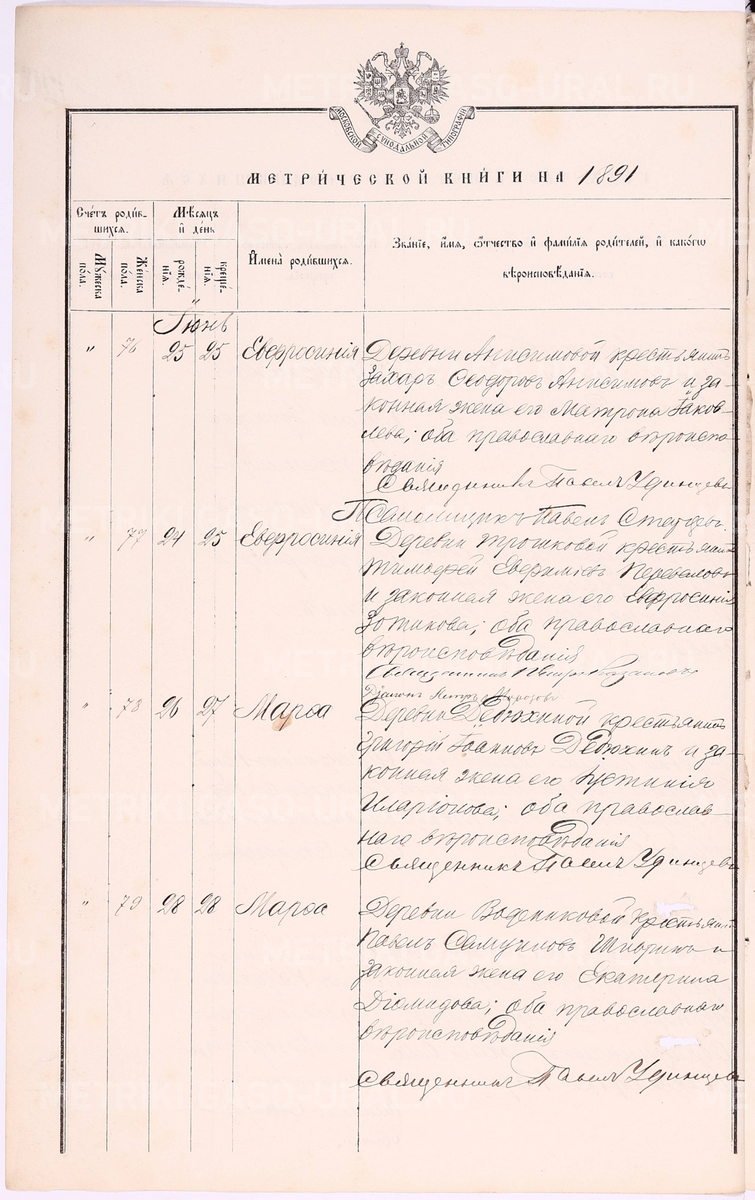 МОСКОВСКОЙ СУНОДАЛЬНОЙ ТИПОГРАФІИ
МЕТРИ́ЧЕСКОЙ КНИ́ГИ НА 1891
Сче́тъ роди́вшихся.
Му́жеска по́ла.
Же́нска по́ла.
Мѣ́сяцъ и҆ де́нь
рожде́нїѧ.
креще́нїѧ.
И҆мена̀ роди́вшихся.
Зва́нїе, и҆́мѧ, ѻ҆́тчество и҆ фами́лїѧ роди́телей, и҆ како́гѡ
вѣроисповѣ́данїѧ.
Іюнь
" 76 25 25 Евфросинія Деревни Анисимовой крестьянинъ
Захаръ Ѳеодоровъ Анисимовъ и за-
конная жена его Матрона Іаков-
лева; оба православнаго вѣроиспо-
вѣданія
Священникъ Павелъ Удинцевъ
Псаломщикъ Павелъ
" 77 24 25 Евфросинія Деревни Трошковой крестьянинъ
Тимоѳей Евфиміевъ Переваловъ
и законная жена его Евфросинія
Зотикова; оба православнаго
вѣроисповѣданія
Священникъ Петръ
Діаконъ Петръ
" 78 26 27 Марѳа Деревни Девюхиной крестьянинъ
Григорій Іоанновъ Девюхинъ и за-
конная жена его
Иларіонова; оба православ-
наго вѣроисповѣданія
Священникъ Павелъ Удинцевъ
" 79 28 28 Марѳа Деревни Водениковой крестьянинъ
Павелъ Самуиловъ и
законная жена его Екатерина
Діомидова; оба православнаго
вѣроисповѣданія
Священникъ Павелъ Удинцевъ